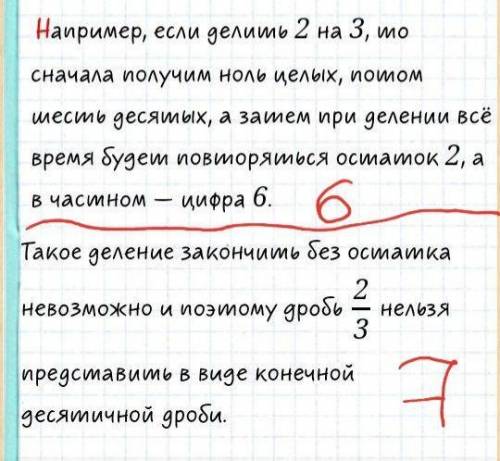 Например, если делить 2 на 3, то
сначала получим ноль целых, потом
шесть десятых, а затем при делении всё
время будет повторяться остаток 2, а
в частном — цифра 6. 6
Такое деление закончить без остатка
невозможно и поэтому дробь 2/3 нельзя
представить в виде конечной
десятичной дроби. 7